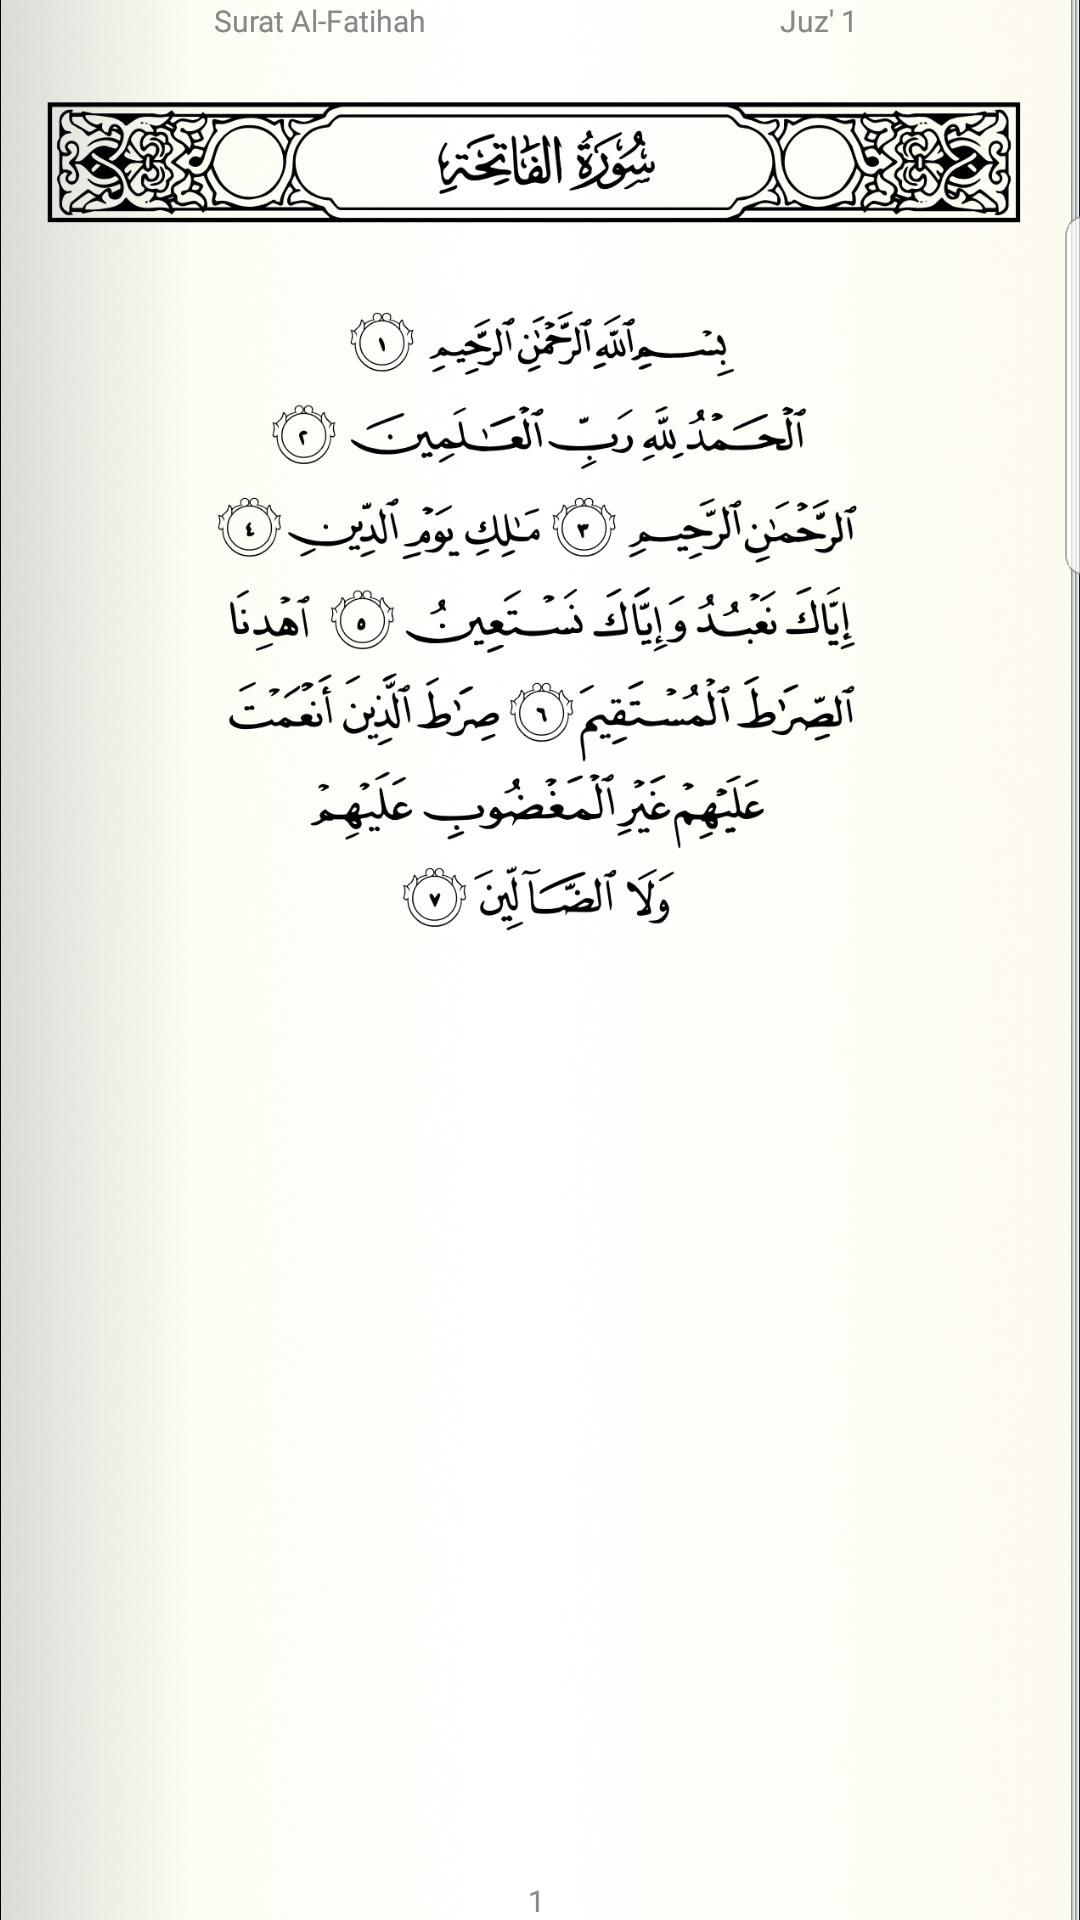 Surat Al-Fatihah Juz' 1
سُورَةُ الفَاتِحَةِ
بِسۡمِ ٱللَّهِ ٱلرَّحۡمَٰنِ ٱلرَّحِيمِ ١
ٱلۡحَمۡدُ لِلَّهِ رَبِّ ٱلۡعَٰلَمِينَ ٢
ٱلرَّحۡمَٰنِ ٱلرَّحِيمِ ٣ مَٰلِكِ يَوۡمِ ٱلدِّينِ ٤
إِيَّاكَ نَعۡبُدُ وَإِيَّاكَ نَسۡتَعِينُ ٥ ٱهۡدِنَا
ٱلصِّرَٰطَ ٱلۡمُسۡتَقِيمَ ٦ صِرَٰطَ ٱلَّذِينَ أَنۡعَمۡتَ
عَلَيۡهِمۡ غَيۡرِ ٱلۡمَغۡضُوبِ عَلَيۡهِمۡ
وَلَا ٱلضَّآلِّينَ ٧
1